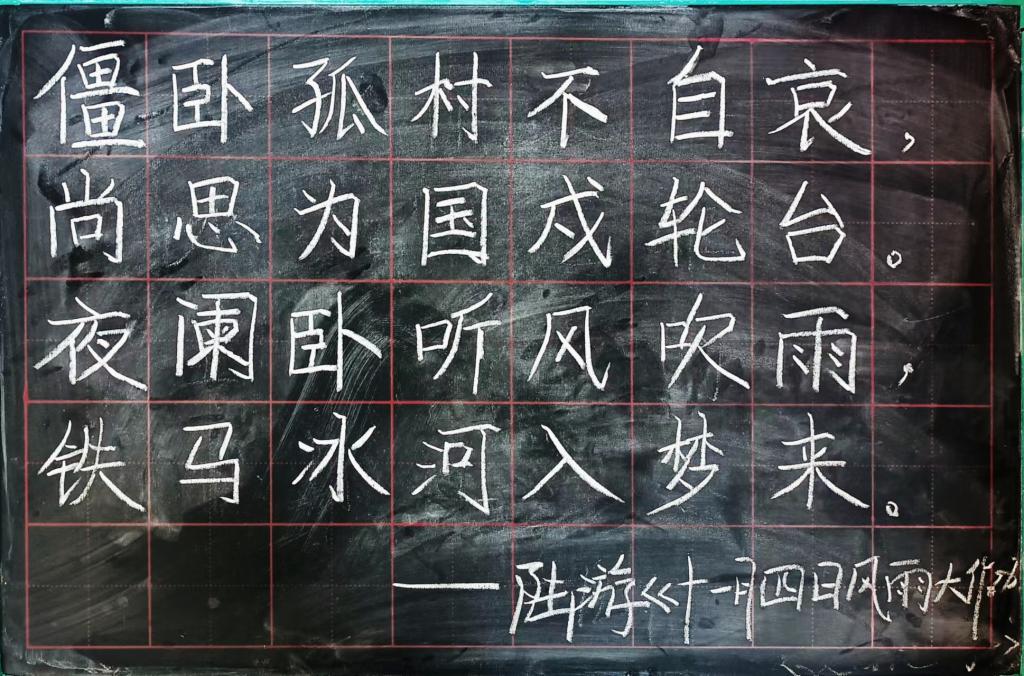 僵卧孤村不自哀，
尚思为国戍轮台。
夜阑卧听风吹雨，
铁马冰河入梦来。
——陆游《十一月四日风雨大作》